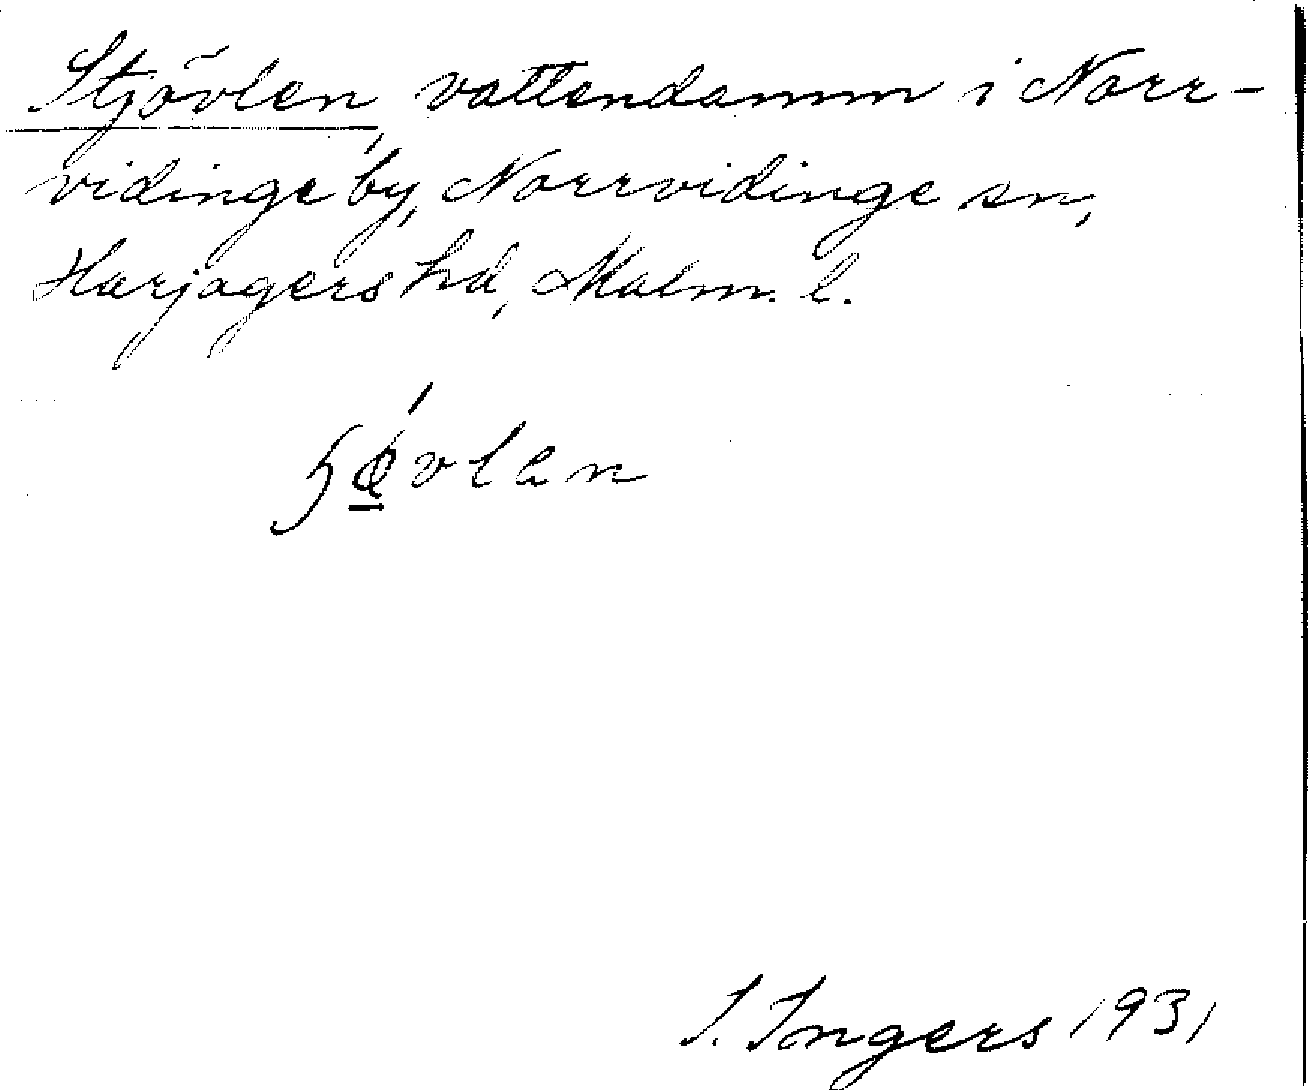 Stjövlen, vattendamm i Norr-
vidinge by, Norrvidinge sn,
Harjagers hd, Malm. l.
I. Ingers 1931